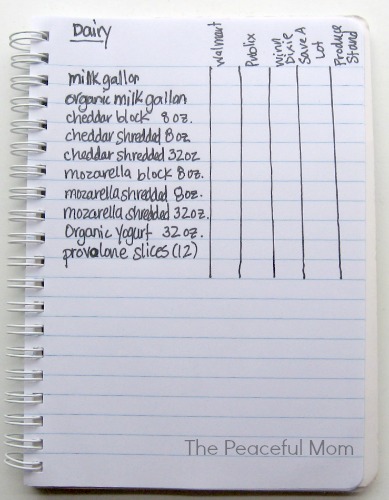 Dairy
Walmart
Publix
Winn Dixie
Save A Lot
Produce Stand
milk gallon
organic milk gallon
cheddar block 8 oz.
cheddar shredded 8 oz.
cheddar shredded 32 oz
mozarella block 8 oz.
mozarella shredded 8oz.
mozarella shredded 32oz.
Organic Yogurt 32 oz.
provolone slices (12)
The Peaceful Mom